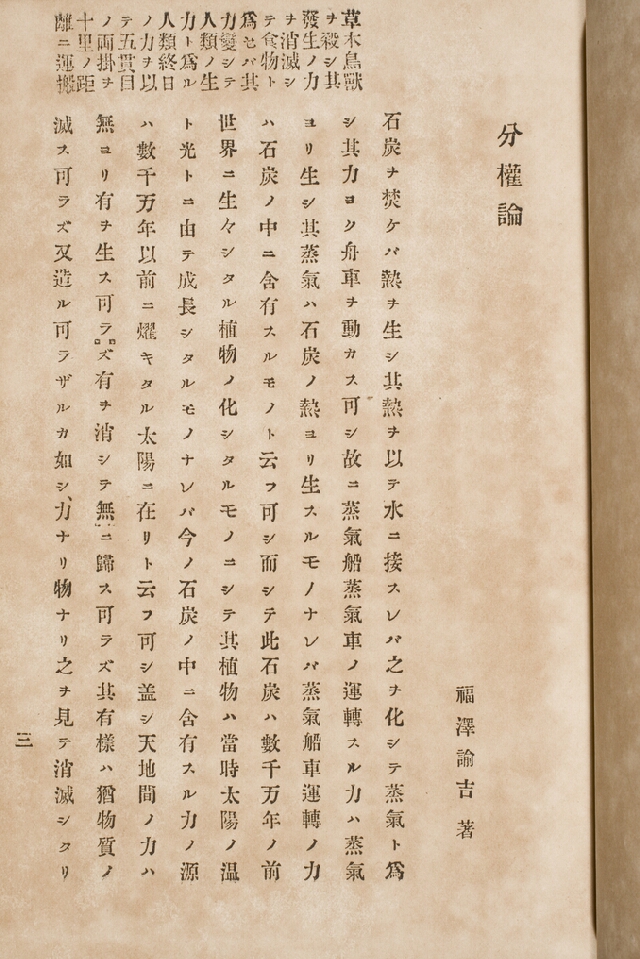 分權論
福澤諭吉 著
石炭ヲ焚ケバ熱ヲ生シ其熱ヲ以テ水ニ接スレバ之ヲ化シテ蒸氣ト爲
シ其力ヨク舟車ヲ動カス可シ故ニ蒸氣船蒸氣車ノ運轉スル力ハ蒸氣
ヨリ生シ其蒸氣ハ石炭ノ熱ヨリ生スルモノナレバ蒸氣船車運轉ノ力
ハ石炭ノ中ニ含有スルモノト云フ可シ而シテ此石炭ハ數千万年ノ前
世界ニ生々シタル植物ノ化シタルモノニシテ其植物ハ當時太陽ノ温
ト光トニ由テ成長シタルモノナレバ今ノ石炭ノ中ニ含有スル力ノ源
ハ數千万年以前ニ燿キタル太陽ニ在リト云フ可シ盖シ天地間ノ力ハ
無ヨリ有ヲ生ス可ラズ有ヲ消シテ無ニ歸ス可ラズ其有樣ハ猶物質ノ
滅ス可ラズ又造ル可ラザルカ如シ、力ナリ物ナリ之ヲ見テ消滅シタリ
草木鳥獸
ヲ殺シ其
發生ノ力
ヲ消滅シ
テ食物ト
爲セバ其
力變シテ
人類ノ生
力ト爲ル
人類終日
ノ力ヲ以
テ五貫目
ノ両掛ヲ
十里ノ距
離ニ運搬
三